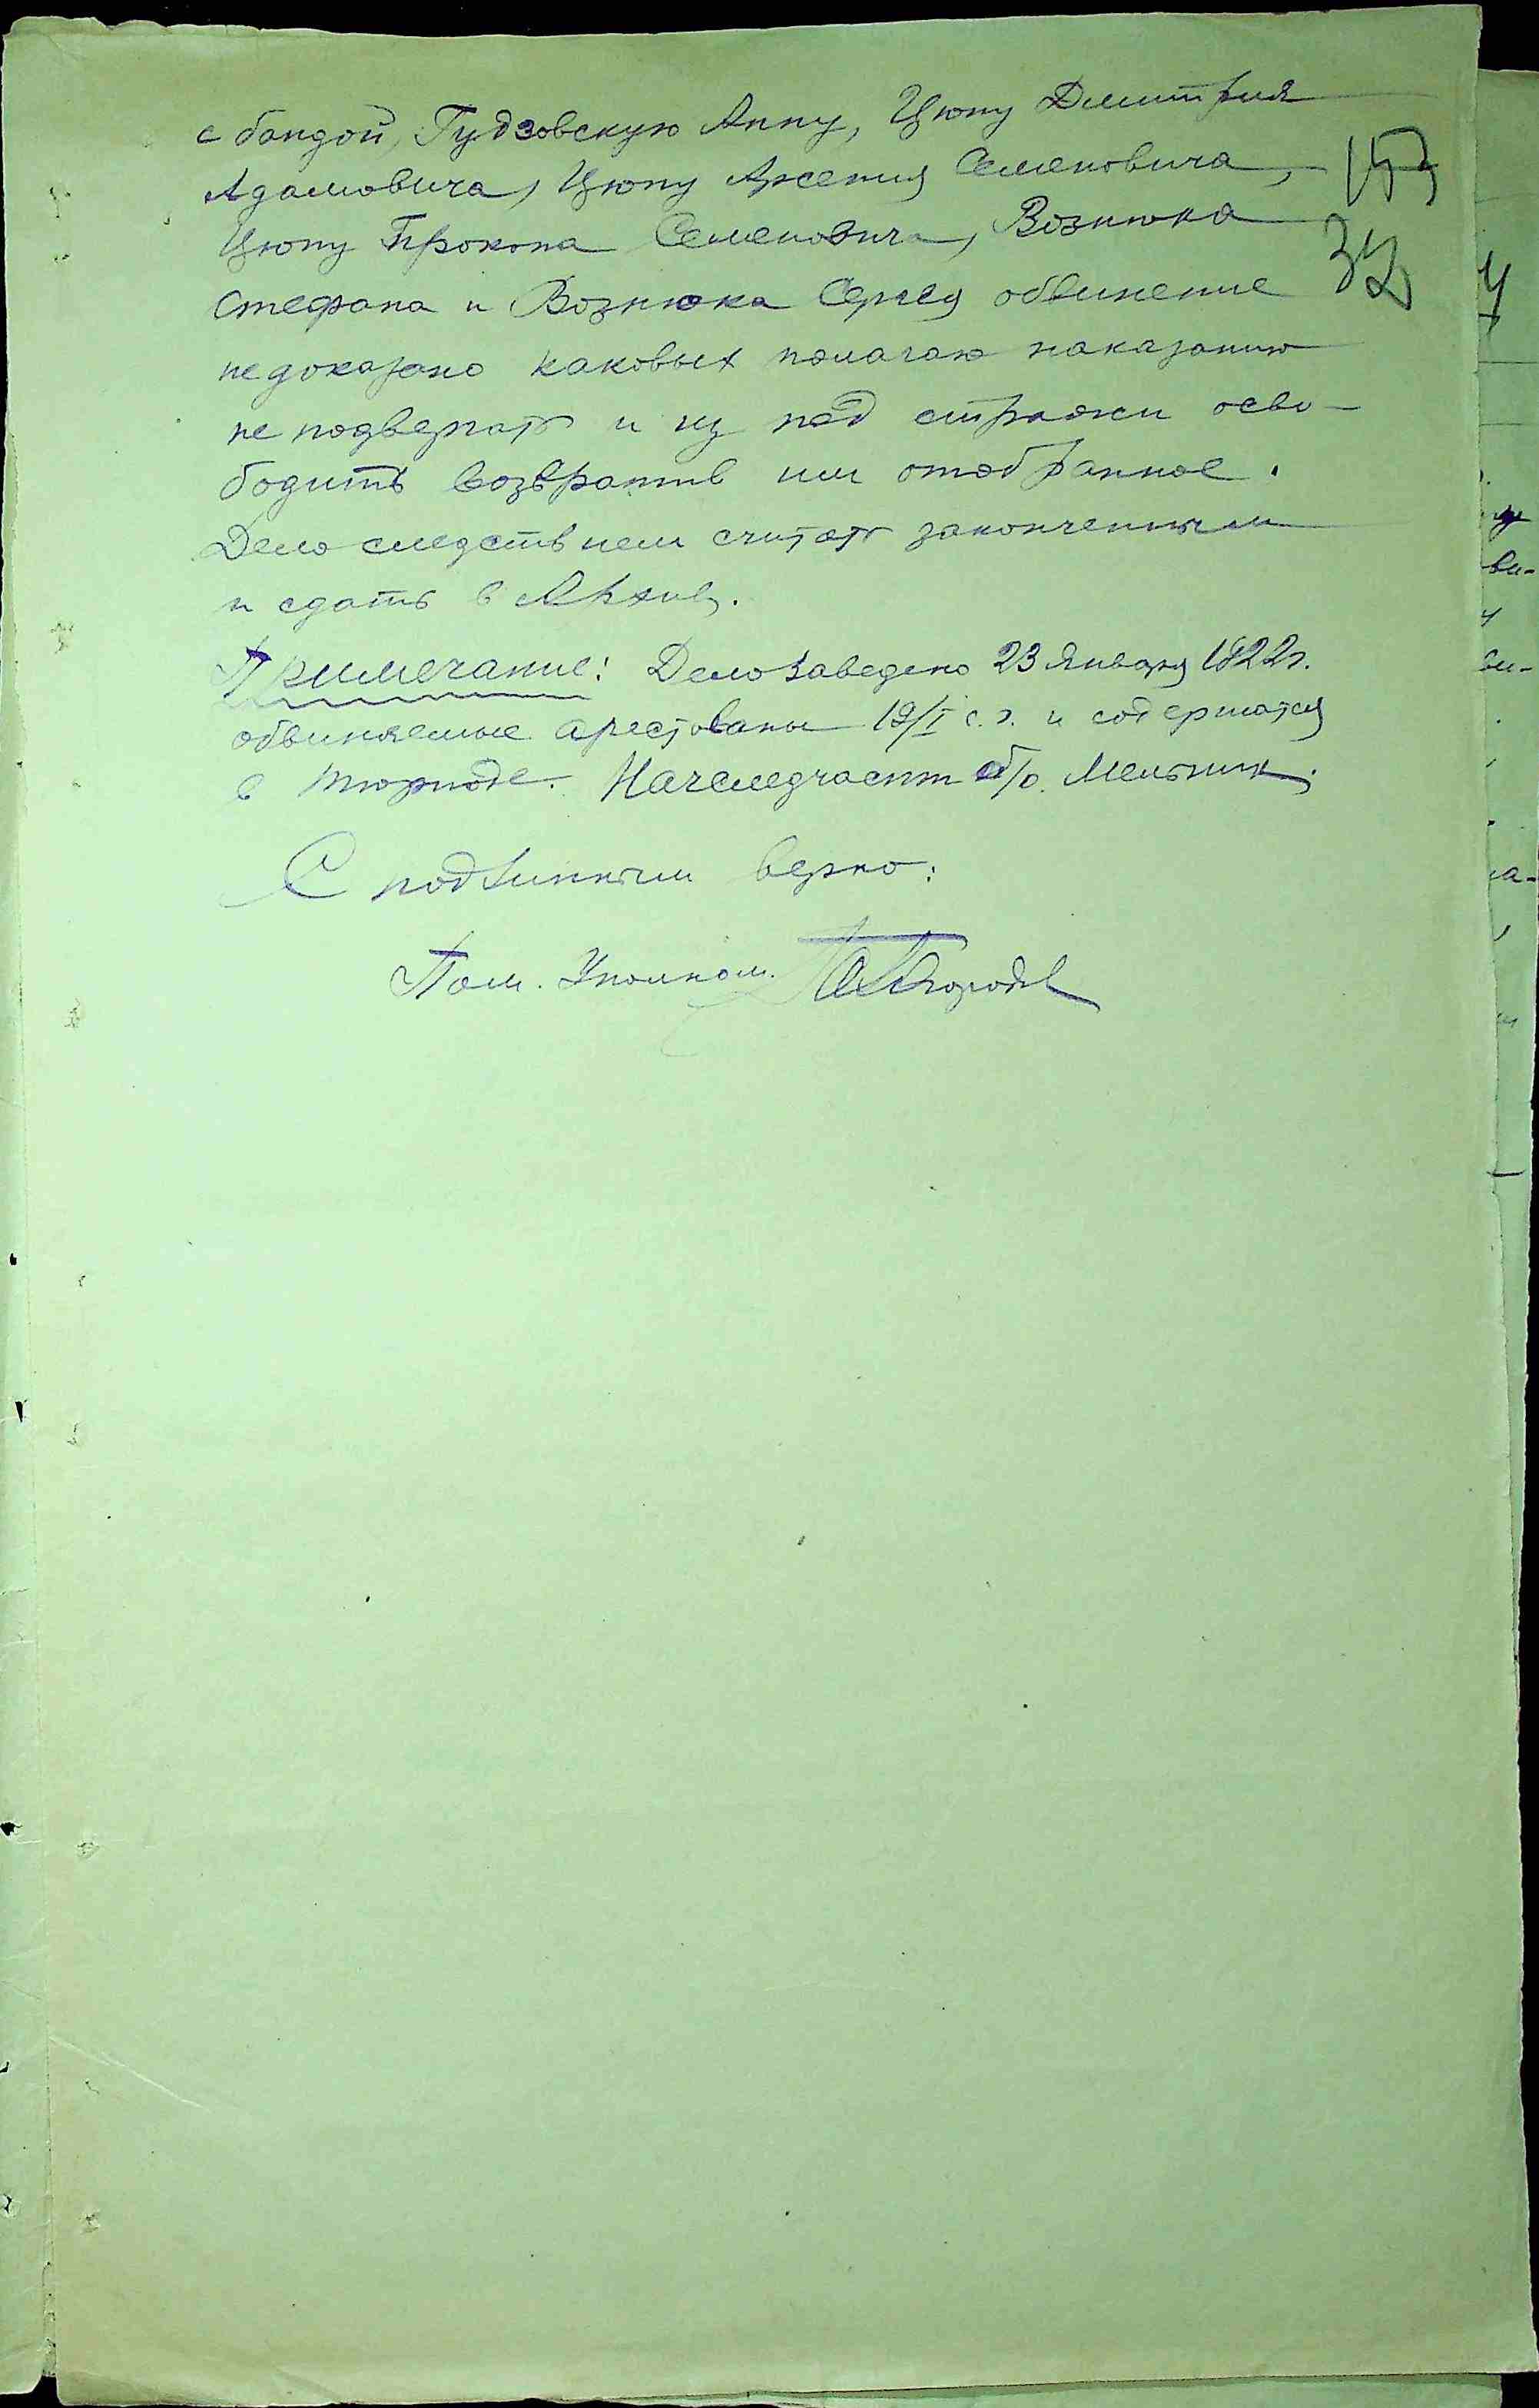 с бандой, Гудзовскую Анну, Цюпу Дмитрия
Адамовича, Цюпу Арсения Семеновича,
Цюпу Прокопа Семеновича, Вознюка
Стефана и Вознюка Сергея обвинение
не доказано каковых полагаю наказанию
не подвергать и из под стражи осво-
бодить возвратив им отобранное.
Дело следствием считать законченным
и сдать в Архив.
Примечание: Дело заведено 23 января 1922г.
обвиняемые арестованы 19/I с.г. и содержатся
в тюрподе. Начследчасти б/о. Мельник.
С подлинным верно:
Пом. Уполном.